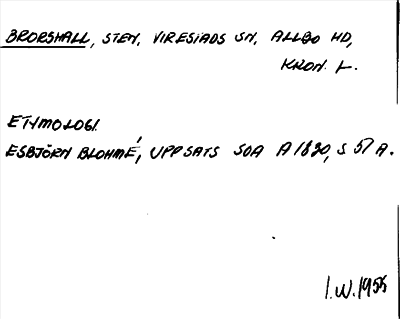 BRORSHALL, STEN, VIRESTADS SN, ALLBO HD,
KRON. L.
ETYMOLOGI.
ESBJÖRN BLOHMÉ, UPPSATS SOA A 1820, S 51 A.
I.W. 1955